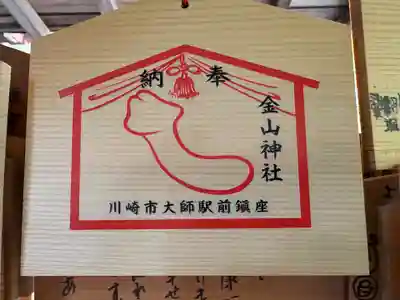 奉納
金山神社
川崎市大師駅前鎮座